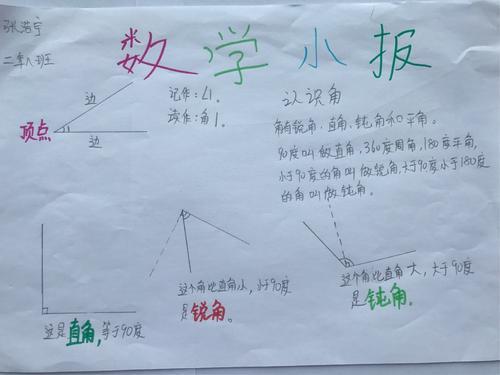 张浩宁
二年八班
数学小报
边
边
顶点
记作：∠1。
读作：角1。
认识角
角有锐角、直角、钝角和平角。
90度叫做直角，360度周角，180度平角，
小于90度的角叫做锐角，大于90度小于180度
的角叫做钝角。
这是直角，等于90度
这个角比直角小，小于90度
是锐角。
这个角比直角大，大于90度
是钝角。